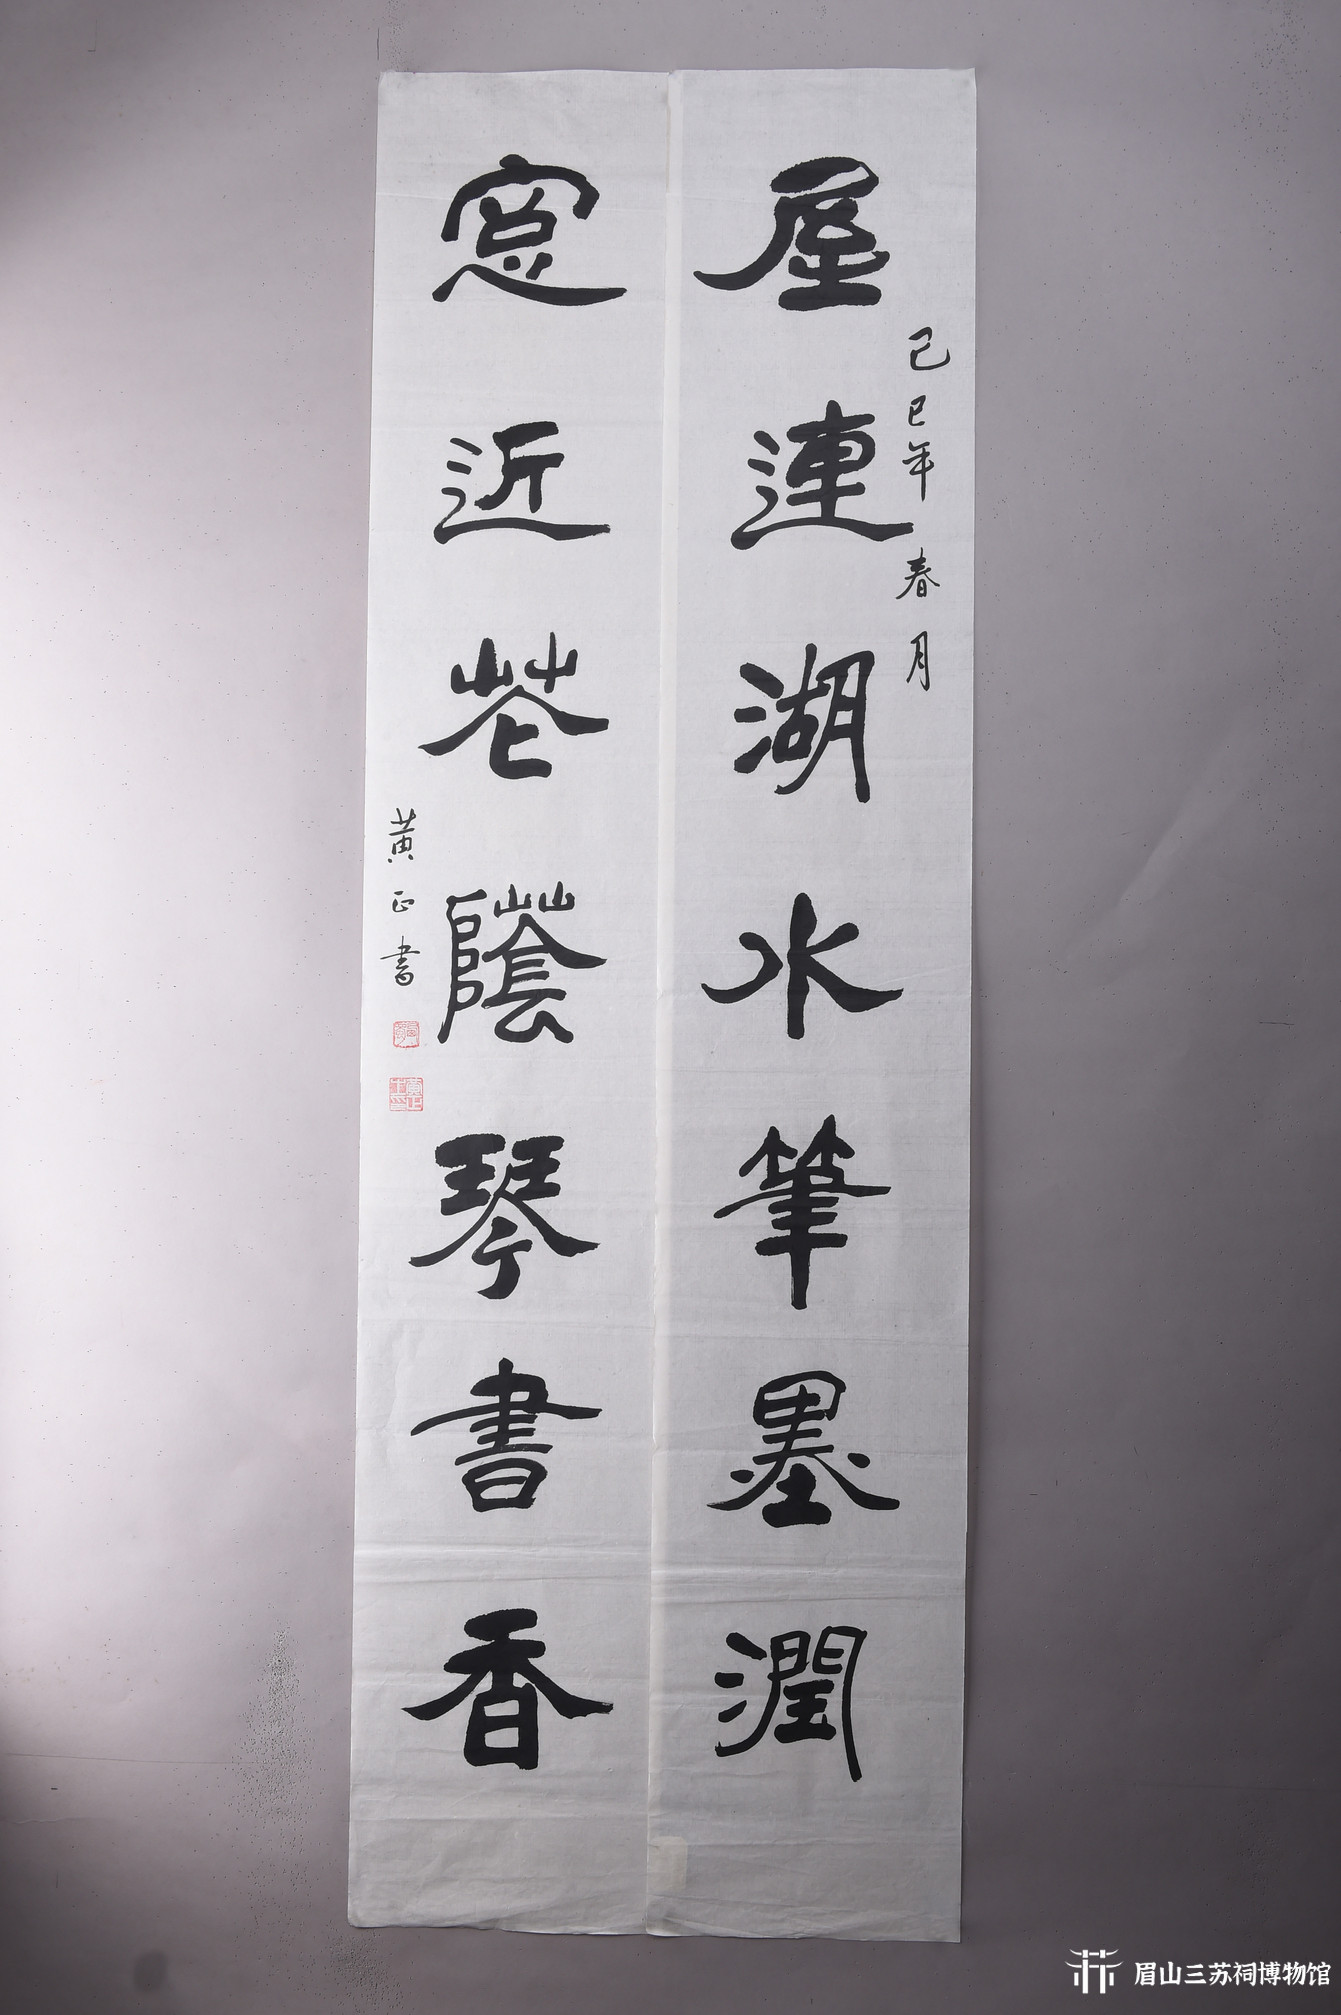 屋連湖水筆墨潤
己巳年春月
窓近花蔭琴書香
黄正書
眉山三苏祠博物馆